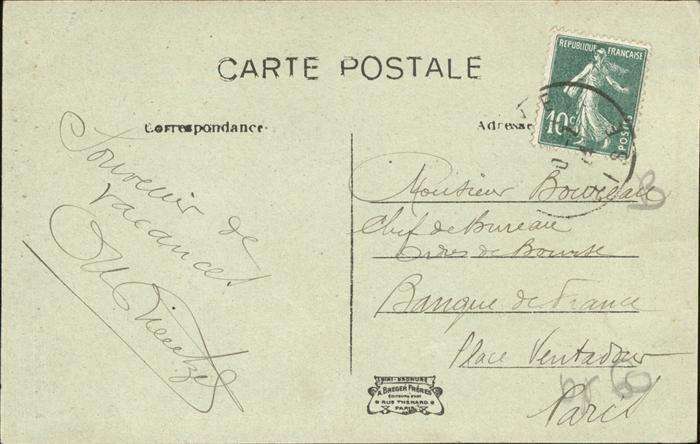 CARTE POSTALE
Correspondance
Adresse
REPUBLIQUE FRANÇAISE
10c
POSTES
Souvenir de
vacances
Monsieur
Chef de Bureau
Ordres de Bourse
Banque de France
Place Ventadour
Paris
MIMI-BROMURE
A. BREGER FRÈRES
9 RUE THÉNARD 9
PARIS